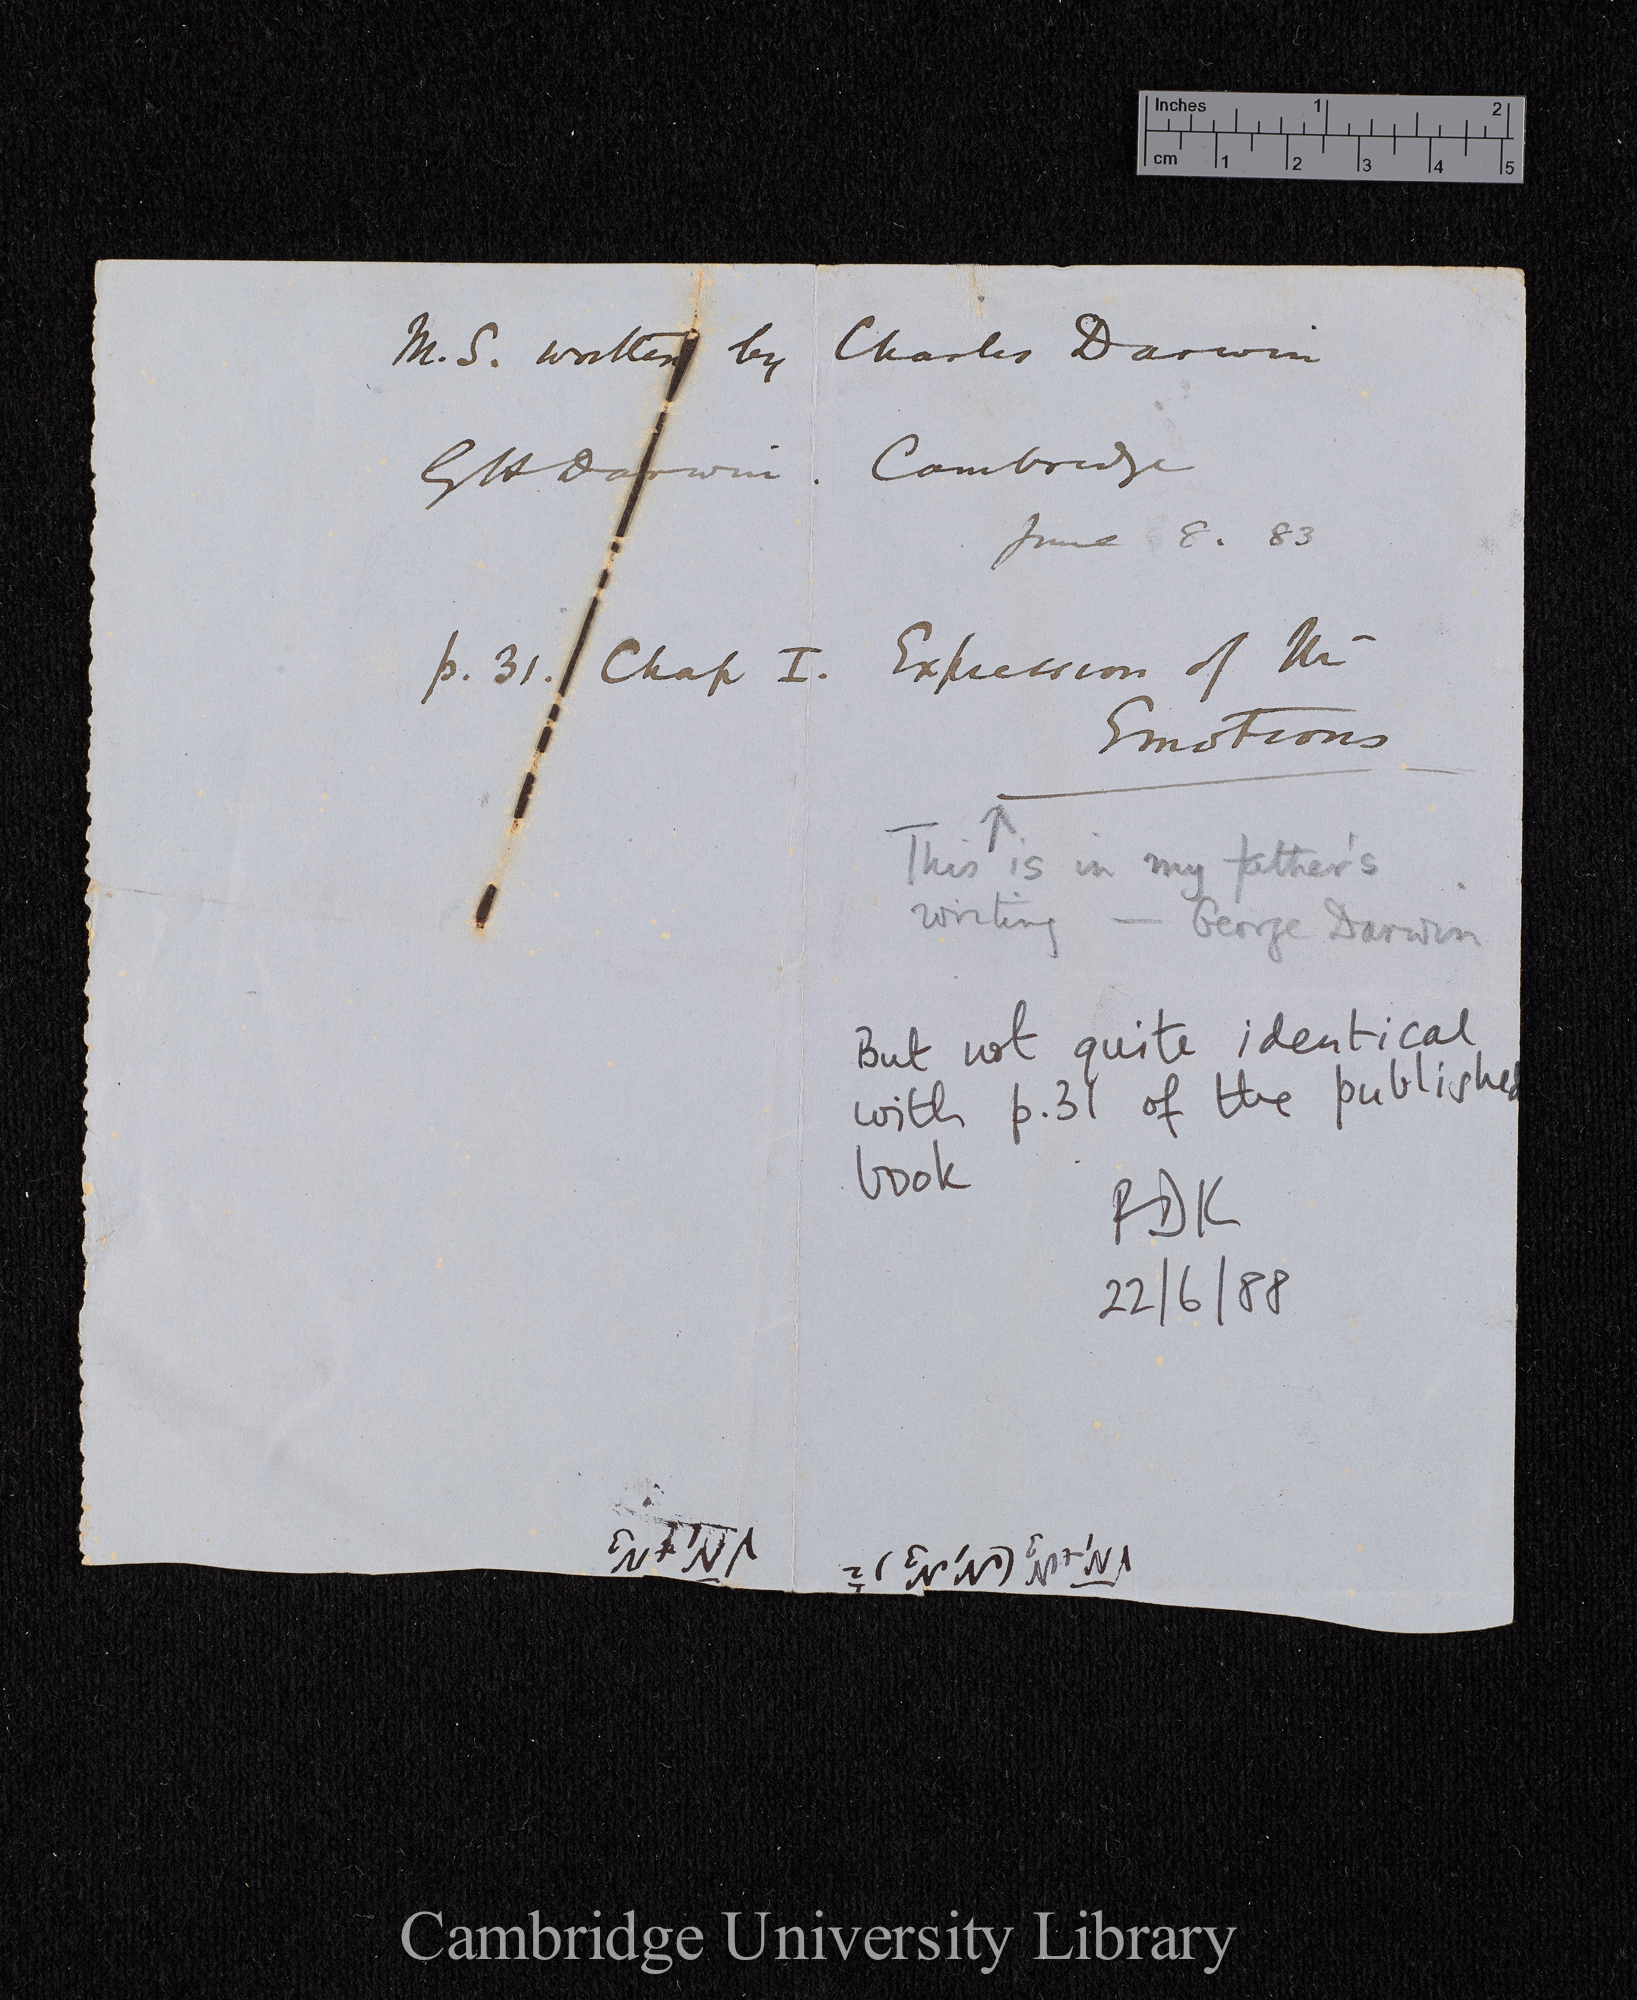 Inches 1 2
cm 1 2 3 4 5
M.S. written by Charles Darwin
G H Darwin. Cambridge
June 8. 83
p. 31. Chap I. Expression of the
Emotions
This is in my father's
writing — George Darwin
But not quite identical
with p.31 of the published
book
RDK
22/6/88
Cambridge University Library